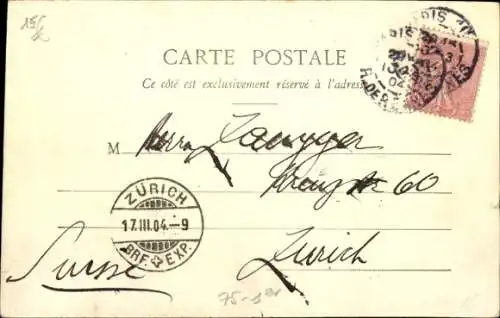 CARTE POSTALE
Ce côté est exclusivement réservé à l'adresse
M Herrn Zangger
Kreuzstr 60
Zürich
Suisse
ZÜRICH
17.III.04.–9
BRF. EXP.
PARIS
04
75-